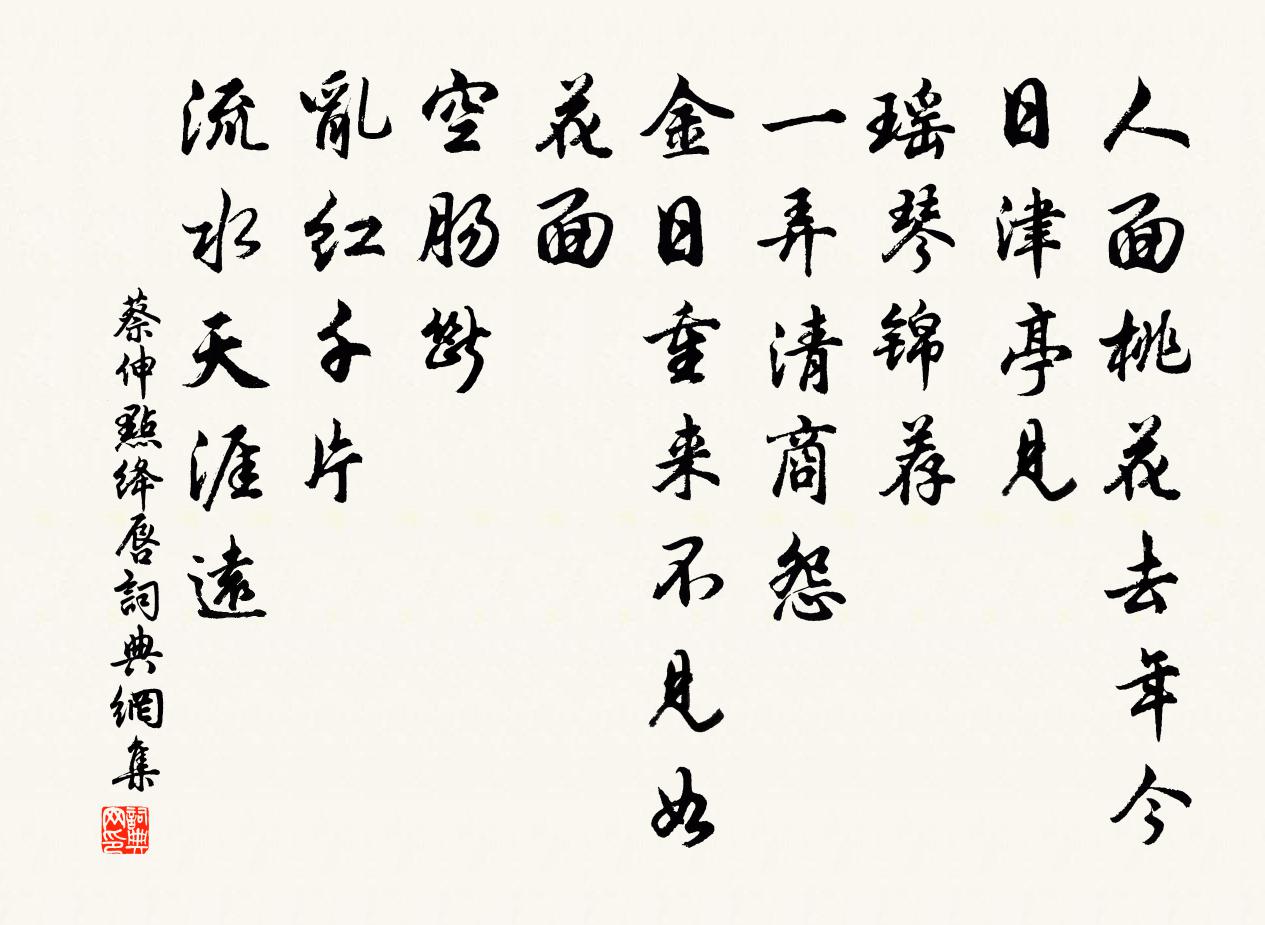 人面桃花去年今
日津亭見
瑶琴锦荐
一弄清商怨
金日重来不見如
花面
空肠斷
亂红千片
流水天涯遠
蔡伸點绛唇詞典網集
詞典网印